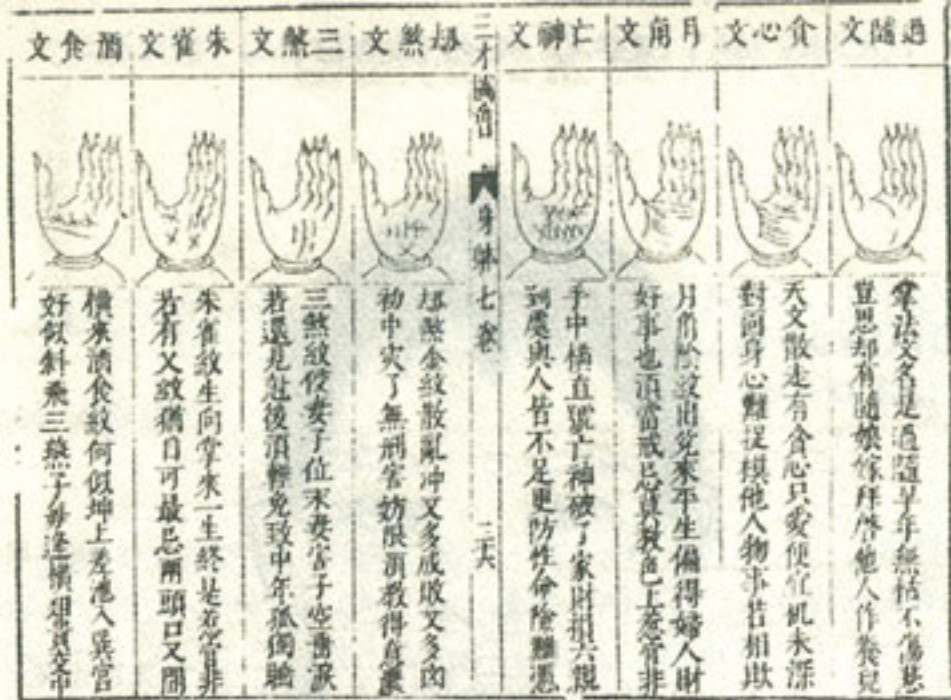 過隨文
文名是過隨早年無怙不傷悲
豈思却有隨娘嫁拜啓他人作養兒
貪心文
天文散走有貪心只愛便宜机未深
對問身心難捉摸他人物事苦相欺
月角文
月角紋出兌來平生偏得婦人財
好事也須當戒忌莫教色上惹官非
亡神文
手中橫直號亡神破了家財損六親
到處與人皆不足更防性命險難憑
三才圖會
身體七卷
二六
劫煞文
劫煞金紋散亂冲又多成敗又多凶
初中災了無刑害妨限須教得
三煞文
三煞紋侵妻子位末妻害子空
若還見 後須輕免致中年孤獨
朱雀文
朱雀紋生向掌來一生終是惹官非
若有叉紋猶自可最忌兩頭口又開
酒食文
橫來酒食紋何似坤上差池入巽宮
好似斜飛三燕子